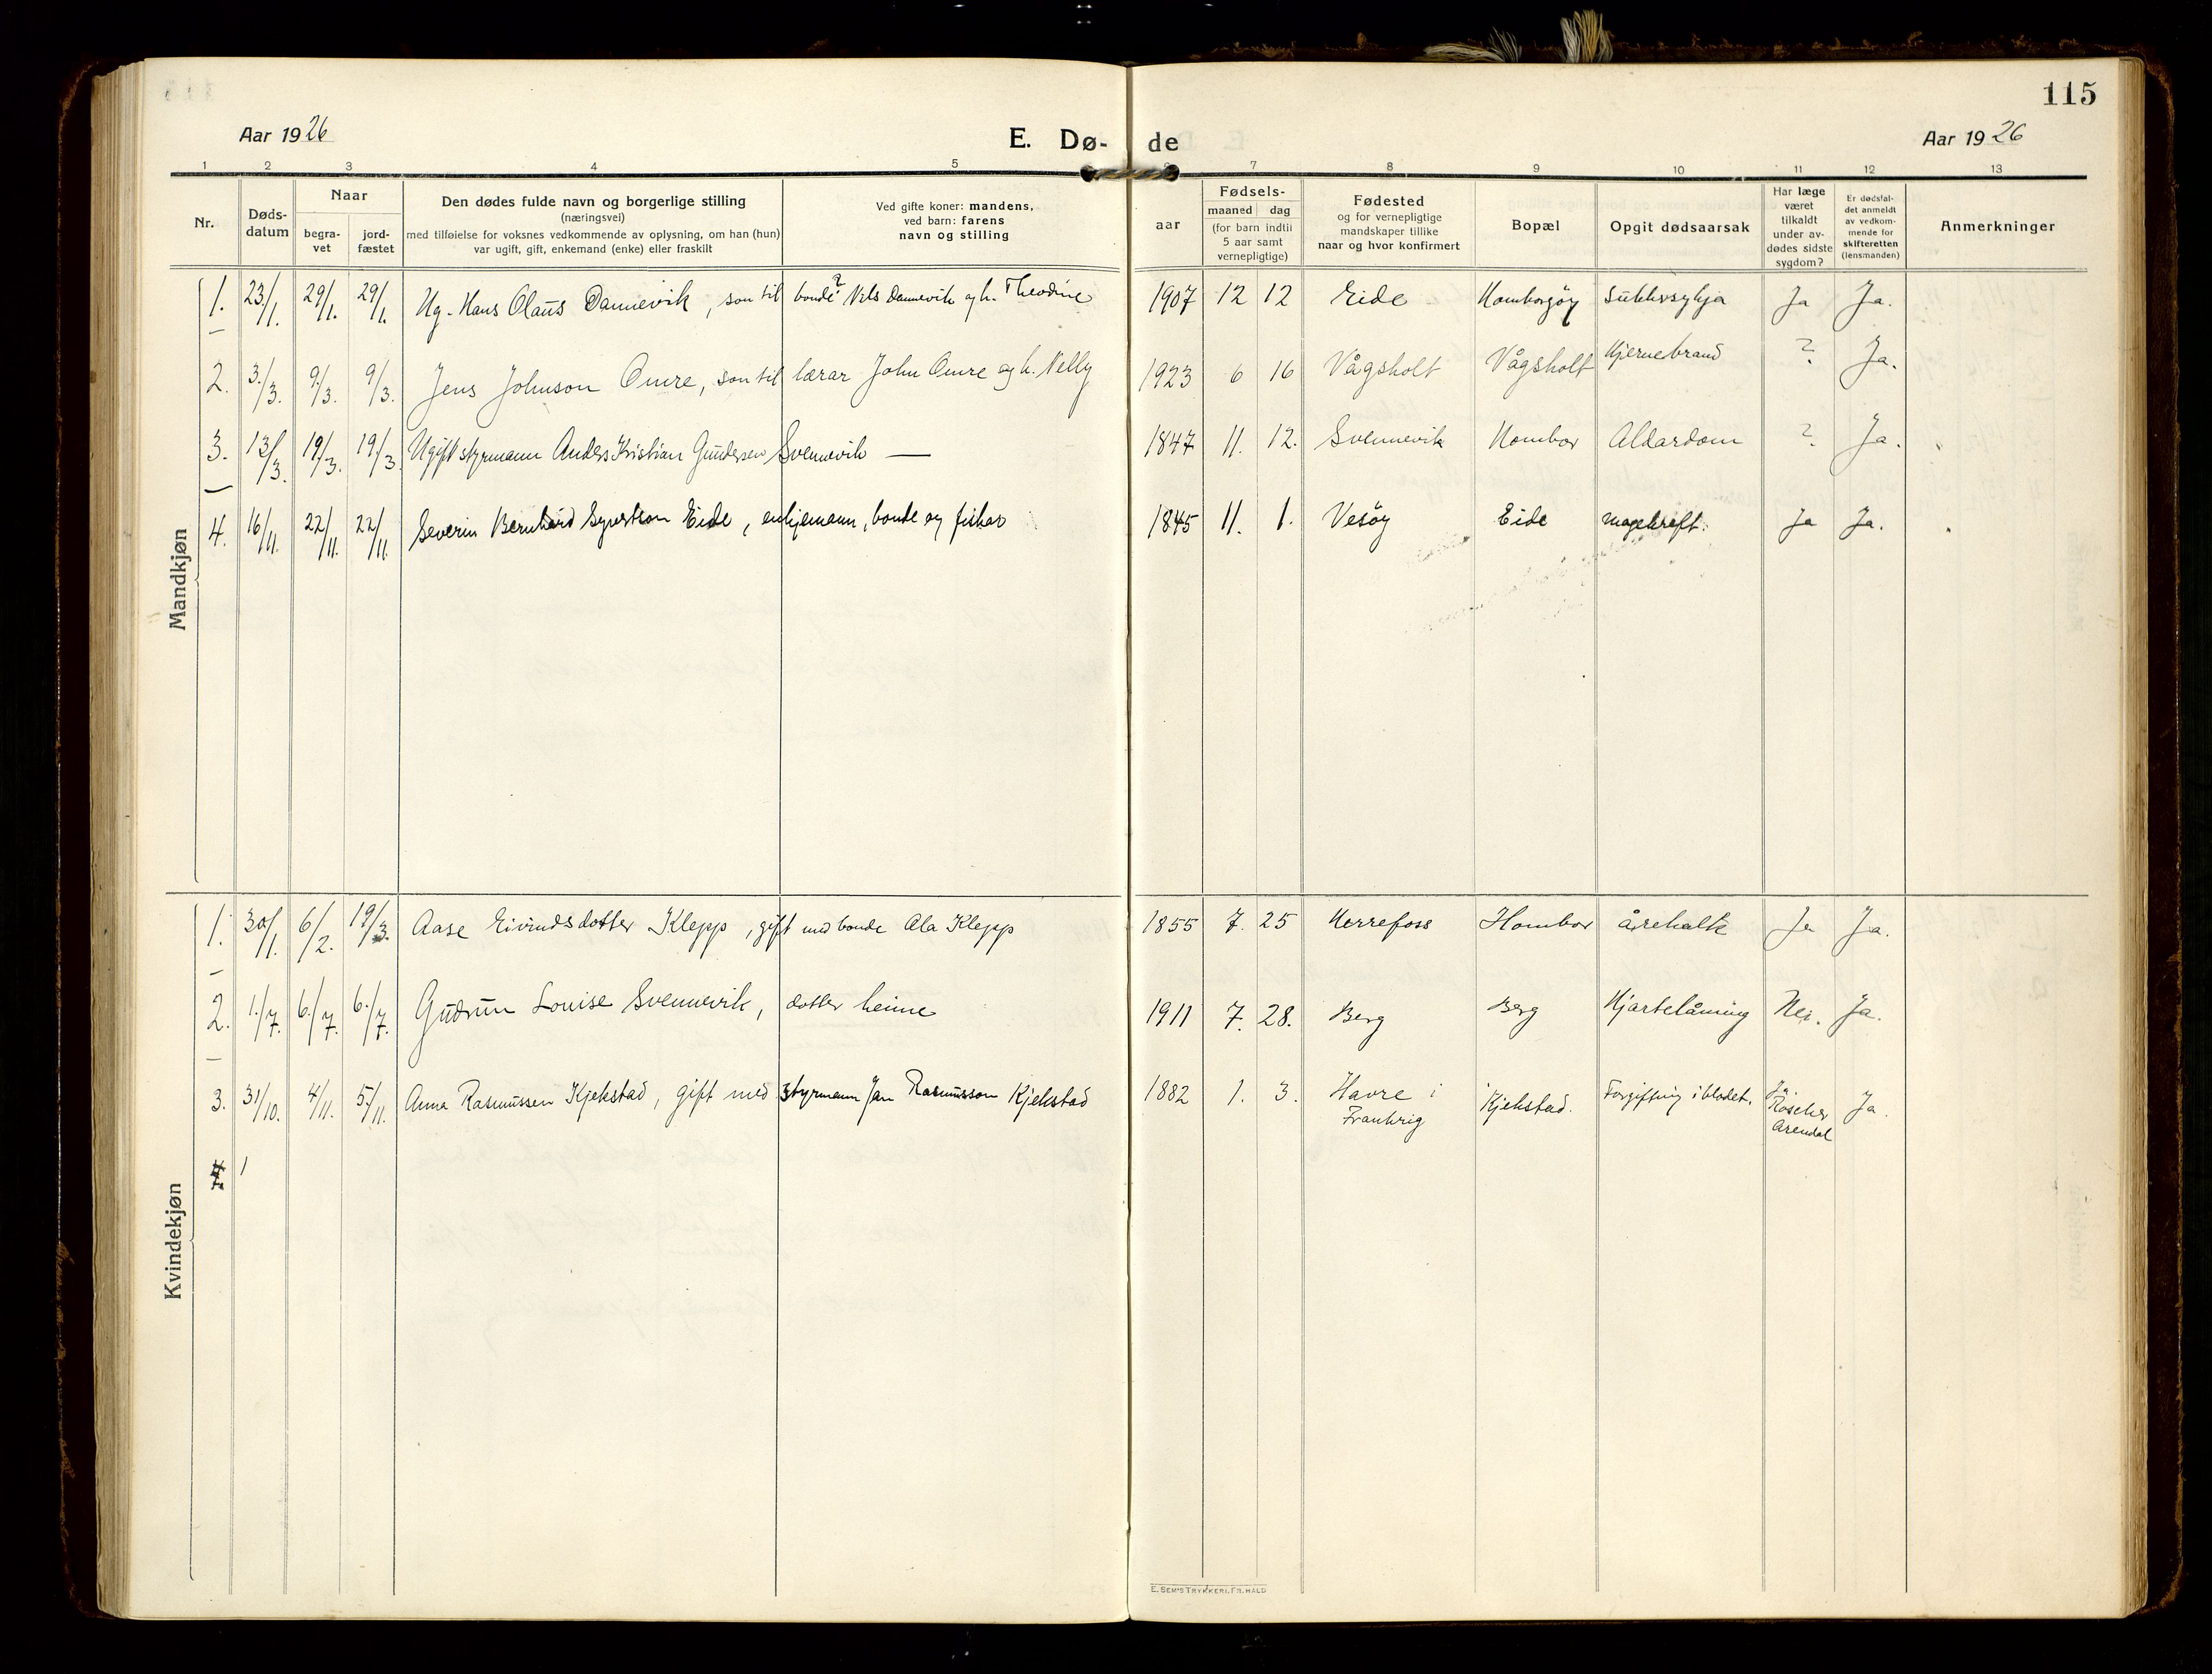 115
Aar 1926 E. Dø- de Aar 1926
1 2 3 4 5 7 8 9 10 11 12 13
Nr.
Døds-
datum
Naar
begra-
vet
jord-
fæstet
Den dødes fulde navn og borgerlige stilling
(næringsvei)
med tilføielse for voksnes vedkommende av oplysning, om han (hun)
var ugift, gift, enkemand (enke) eller fraskilt
Ved gifte koner: mandens,
ved barn: farens
navn og stilling
aar
Fødsels-
maaned dag
(for barn indtil
5 aar samt
vernepligtige)
Fødested
og for vernepligtige
mandskaper tillike
naar og hvor konfirmert
Bopæl
Opgit dødsaarsak
Har læge
været
tilkaldt
under av-
dødes sidste
sygdom?
Er dødsfal-
det anmeldt
av vedkom-
mende for
skifteretten
(lensmanden)
Anmerkninger
Mandkjøn
1. 23/1. 29/1. 29/1. Ug. Hans Olaus Dannevik, son til bonde? Nils Dannevik og h. Theodine 1907 12 12 Eide Homborgöy Sukkersykja Ja Ja.
2. 3./3. 9./3. 9/3. Jens Johnson Omre, son til lærar John Omre og h. Nelly 1923 6 16 Vågsholt Vågsholt Hjernebrand ? Ja.
3. 13/3. 19/3. 19./3. Ugift styrmann Anders Kristian Gundersen Svennevik — 1847 11. 12. Svennevik Hombor Aldardom ? Ja.
4. 16/11. 22/11. 22/11. Severin Bernhard Syvertson Eide, enkjemann, bonde og fiskar 1845 11. 1. Vesöy Eide magekreft. Ja Ja.
Kvindekjøn
1. 30/1. 6/2. 19/3. Aase Eivindsdotter Klepp, gift med bonde Ola Klepp 1855 7. 25 Herrefoss Hombor årekalk Ja Ja.
2. 1./7. 6./7. 6./7. Gudrun Louise Svennevik, dotter heime 1911 7. 28. Berg Berg Hjartelåming Nei. Ja.
3. 31/10. 4/11. 5./11. Anna Rasmussen Kjekstad, gift med styrmann Jan Rasmusson Kjekstad 1882 1. 3. Havre i Kjekstad. Forgiftning i blodet. Ja. Ja.
Frankrig Röscher
Arendal
E. SEM'S TRYKKERI, FR.HALD